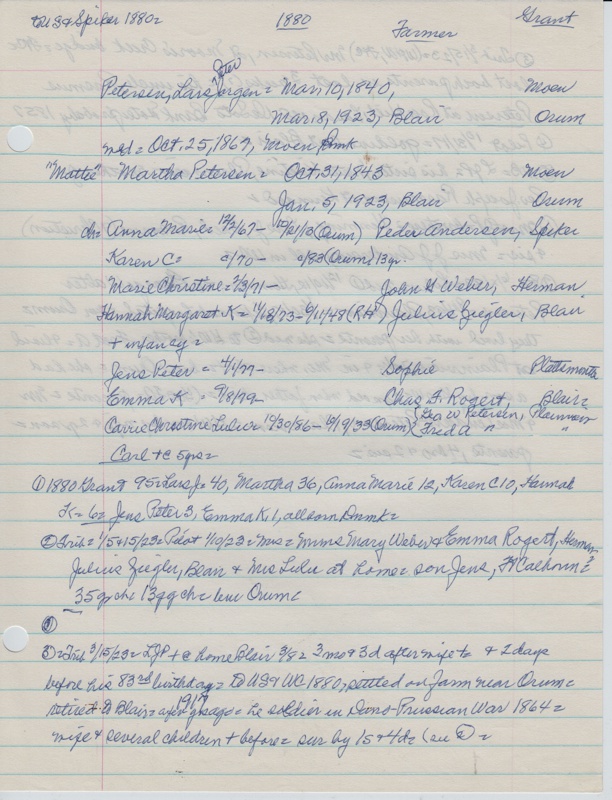 to US & Spiker 1880= 1880 Grant
Farmer
Peter
Petersen, Lars Jorgen = Mar. 10, 1840, Moen
Mar. 8, 1923, Blair Orum
md = Oct. 25, 1867, Moen Dmk
"Mattie" Martha Petersen = Oct. 31, 1843 Moen
Jan. 5, 1923, Blair Orum
ch = Anna Marie = 12/2/67 - 10/21/13 (Orum) Peder Andersen, Spiker
Karen C = 0/70 - 0/83 (Orum) 13 yr
Marie Christine = 7/3/71 - John H Weber, Herman
Hannah Margaret K = 11/18/73 - 6/11/48 (RH) Julius Ziegler, Blair
+ infancy =
Jens Peter = 4/1/77 - Sophie Plattsmouth
Emma K = 9/8/79 - Chris F. Rogert, Blair
Carrie Christine Lulu = 10/30/86 - 6/19/33 (Orum) {Geo W Petersen, Plainview
{Fred A " "
Carl + c 5 yrs =
① 1880 Grant 95 = Lars J = 40, Martha 36, Anna Marie 12, Karen C 10, Hannah
K = 6 = Jens Peter 3, Emma K, 1, all born Dnmk =
② Trib = 1/5 & 15/23 = Pilot 1/10/23 = Mrs = Mmes Mary Weber & Emma Rogert, Herman
Julius Ziegler, Blair & Mrs Lulu at home = son Jens, Ft Calhoun = ?
35 gch = 13 ggch = bur Orum =
③
3) = Trib 3/15/23 = LJP + @ home Blair 3/8 = 3 mo & 3d after wife + & 2 days
before his 83rd birthday = to US & WC 1880, settled on farm near Orum =
1917
retired to Blair = 6 yrs ago = he soldier in Dano-Prussian War 1864 =
wife & several children + before = sur by 1s & 4d = (see ②) =